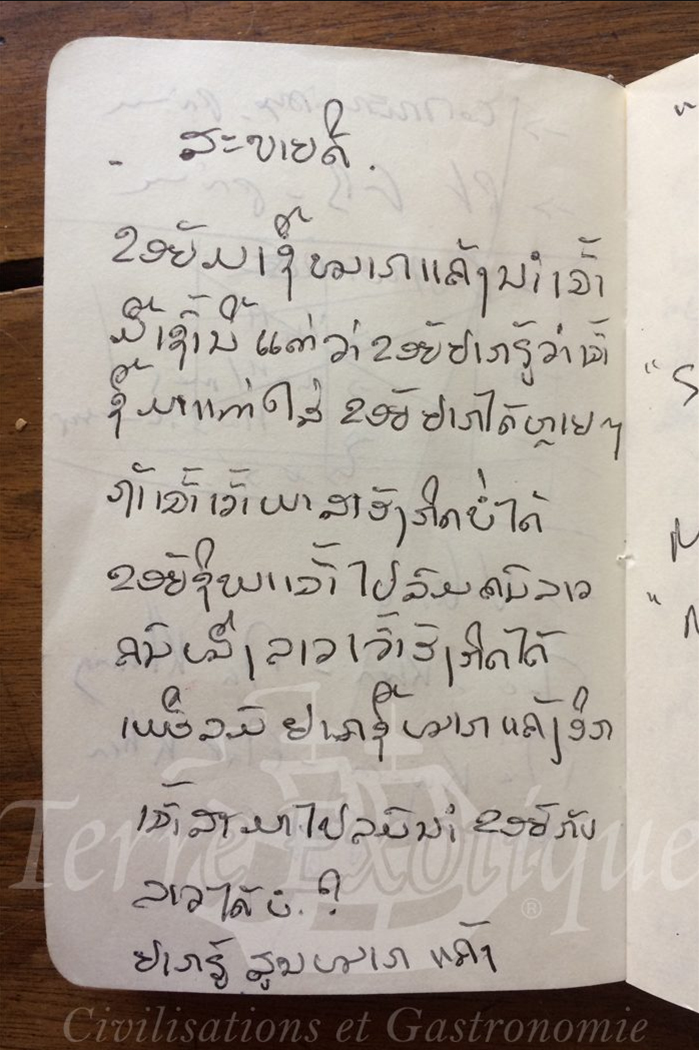 ສະບາຍດີ.
ຂອຍມາຊື້ໝາກແຄ້ງນຳເຈົ້າ
ມື້ເຊົ້ານີ້ ແຕ່ວ່າ ຂອຍຢາກຮູ້ວ່າເຈົ້າ
ຊື້ມາແຕ່ໃສ່ ຂອຍຢາກໄດ້ຫຼາຍໆ
ຖ້າເຈົ້າເວົ້າພາສາອັງກິດບໍ່ໄດ້
ຂອຍຊິພາເຈົ້າໄປລົມຄົນລາວ
ຄົນໜຶ່ງ ລາວເວົ້າອັງກິດໄດ້
ເພິ່ນລົມ ຢາກຊື້ໝາກແຄ້ງອີກ
ເຈົ້າສາມາໄປລົມນຳ ຂອຍກັບ
ລາວໄດ້ບໍ.?
ຢາກຮູ້ ສູນໝາກແຄ້ງ
"
"
"
Terre Exotique ®
Civilisations et Gastronomie